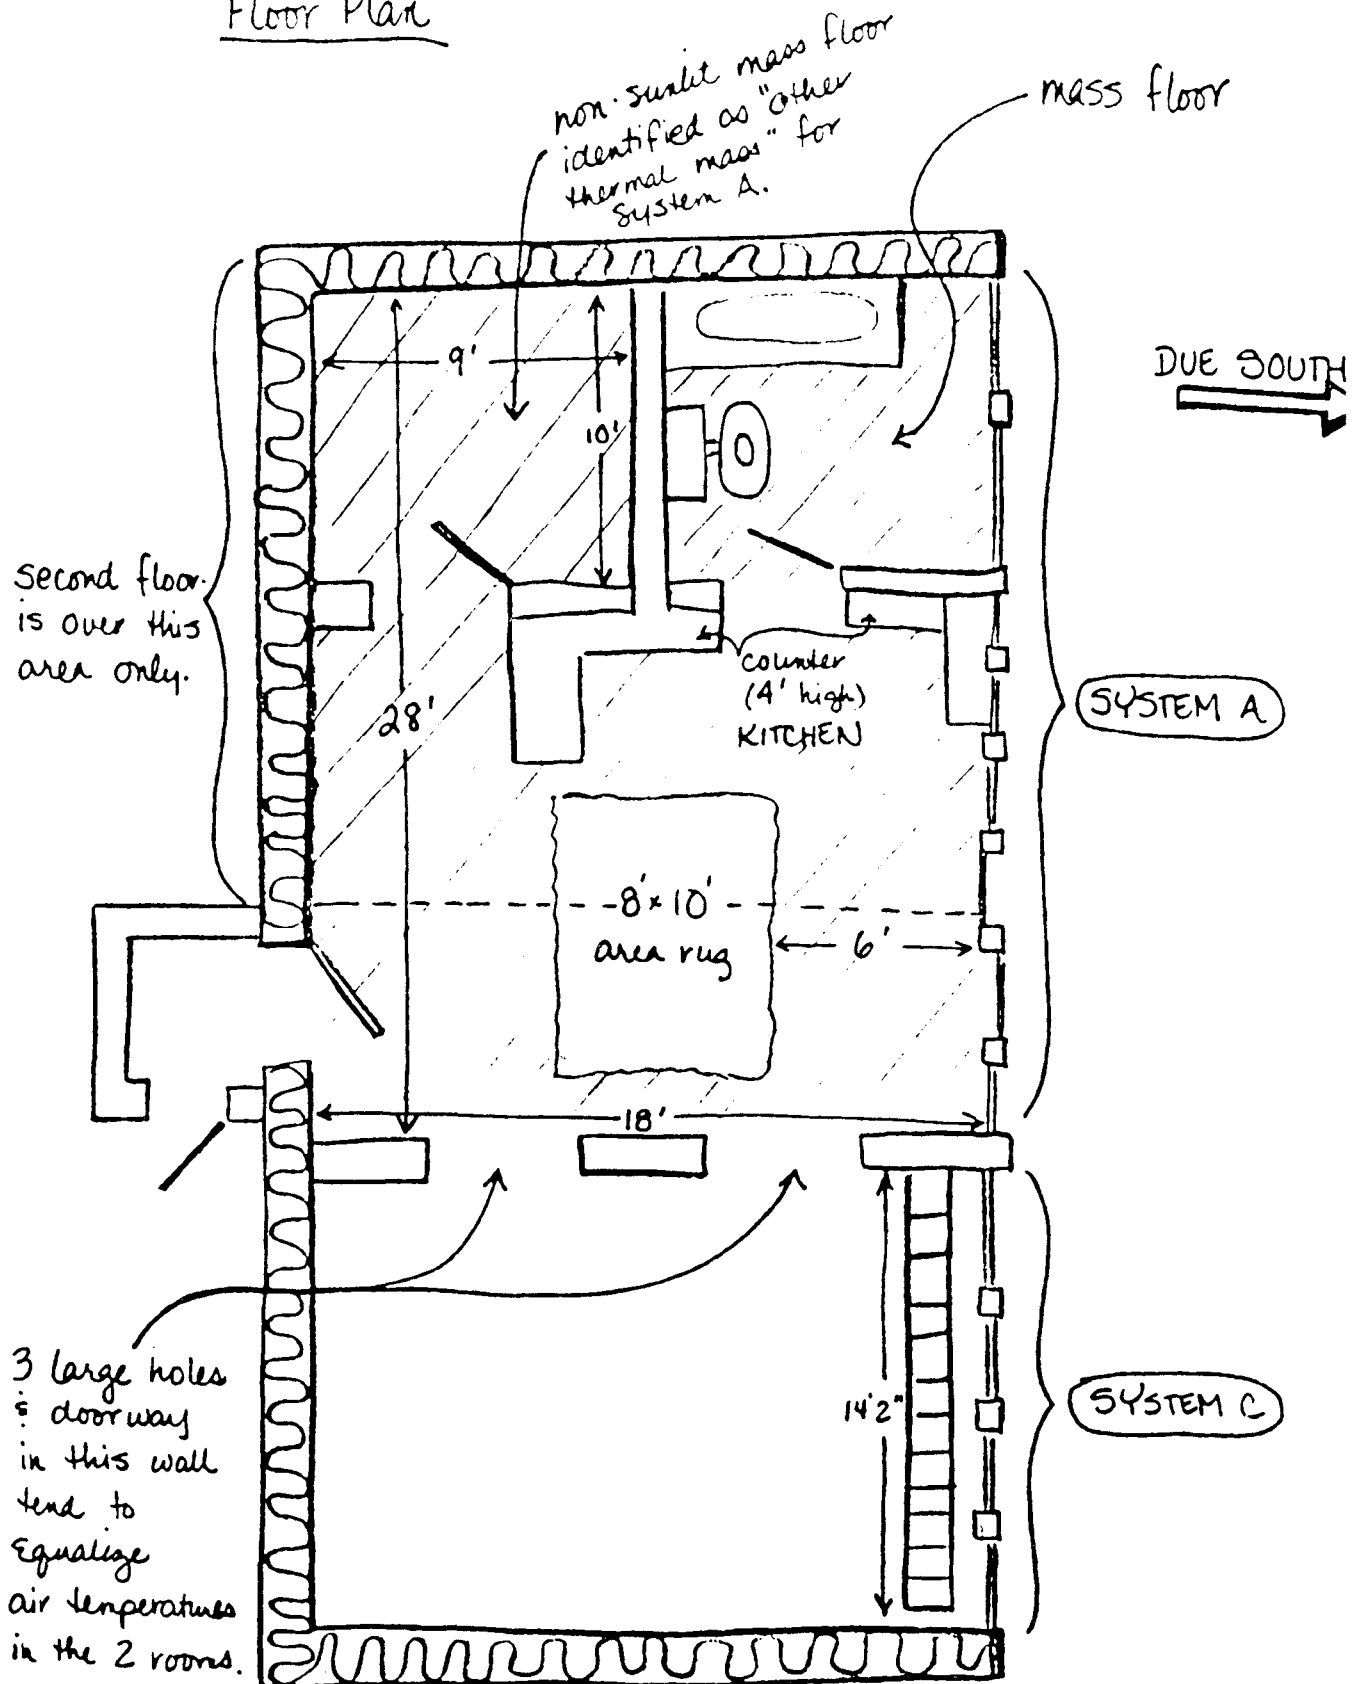 Floor Plan
non-sunlit mass floor
identified as "other
thermal mass" for
System A.
mass floor
DUE SOUTH
9'
10'
second floor
is over this
area only.
28'
counter
(4' high)
KITCHEN
SYSTEM A
8' x 10'
area rug
6'
18'
3 large holes
& doorway
in this wall
tend to
Equalize
air temperatures
in the 2 rooms.
14'2"
SYSTEM C